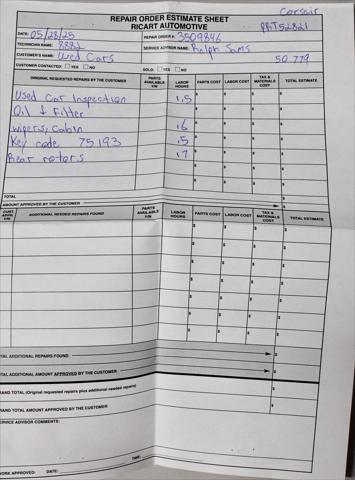 Corsair
REPAIR ORDER ESTIMATE SHEET
RICART AUTOMOTIVE
DATE: 05/28/25 REPAIR ORDER #: 3509846
TECHNICIAN NAME: 8882 SERVICE ADVISOR NAME: Ralph Sams
CUSTOMER'S NAME: Used Cars 50 779
CUSTOMER CONTACTED: YES NO SOLD: YES NO
ORIGINAL REQUESTED REPAIRS BY THE CUSTOMER PARTS AVAILABLE Y/N LABOR HOURS PARTS COST LABOR COST TAX & MATERIALS COST TOTAL ESTIMATE
Used Car Inspection 1.5 $ $ $ $
Oil & Filter $ $ $ $
wipers, Cabin .6 $ $ $ $
Key code 75193 .5 $ $ $ $
Rear rotors 1.7 $ $ $ $
$ $ $ $
$ $ $ $
TOTAL $
AMOUNT APPROVED BY THE CUSTOMER $
CUST. APPR. Y/N ADDITIONAL NEEDED REPAIRS FOUND PARTS AVAILABLE Y/N LABOR HOURS PARTS COST LABOR COST TAX & MATERIALS COST TOTAL ESTIMATE
$ $ $ $
$ $ $ $
$ $ $ $
$ $ $ $
$ $ $ $
$ $ $ $
$ $ $ $
TAL ADDITIONAL REPAIRS FOUND $
TAL ADDITIONAL AMOUNT APPROVED BY THE CUSTOMER $
RAND TOTAL (Original requested repairs plus additional needed repairs) $
RAND TOTAL AMOUNT APPROVED BY THE CUSTOMER $
ERVICE ADVISOR COMMENTS:
TIME:
WORK APPROVED: DATE: